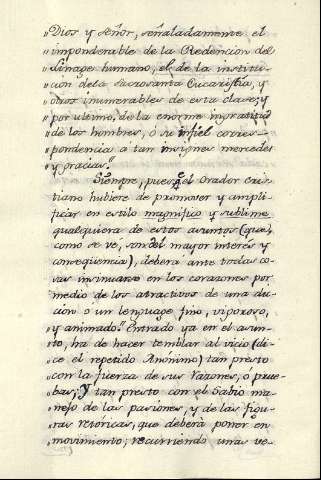 "Dios y Señor, señaladamente el
"imponderable de la Redencion del
"Linage humano, el de la institu-
"cion dela Sacrosanta Eucaristia, y
"otros inumerables de esta clase; y
"por ultimo, de la enorme ingratitud
"de los hombres, ò su infiel corres-
"pondencia a tan insignes mercedes
"y gracias."
Siempre, pues, q.e el Orador Cris-
tiano hubiere de promover y ampli-
ficar en estilo magnifico y sublime
qualquiera de estos asuntos (que,
como se ve, son del mayor interes y
conseqüencia), deberá ante todas co-
sas insinuarse en los corazones por
medio de los atractivos de una dic-
cion ò un lenguage fino, vigoroso,
y animado. Entrado ya en el asun-
to, ha de hacer temblar al vicio (di-
ce el repetido Anónimo) tan presto
con la fuerza de sus razones, ò prue-
bas, y tan presto con el sabio ma-
nejo de las pasiones, y de las figu-
ras retóricas, que deberá poner en
movimiento, recurriendo unas ve-